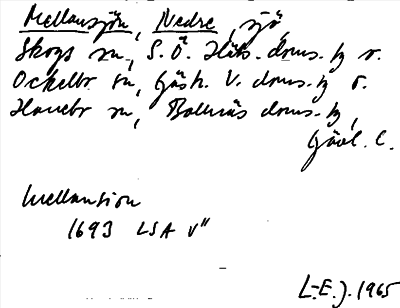 Mellansjön, Nedre, sjö
Skogs sn, S. Ö. Häls. doms.hg o.
Ockelbo sn, Gästr. V. doms.hg o.
Hanebo sn, Bollnäs doms.hg,
Gävl. l.
Mellansion
1693 LSA V"
L-E. J. 1965